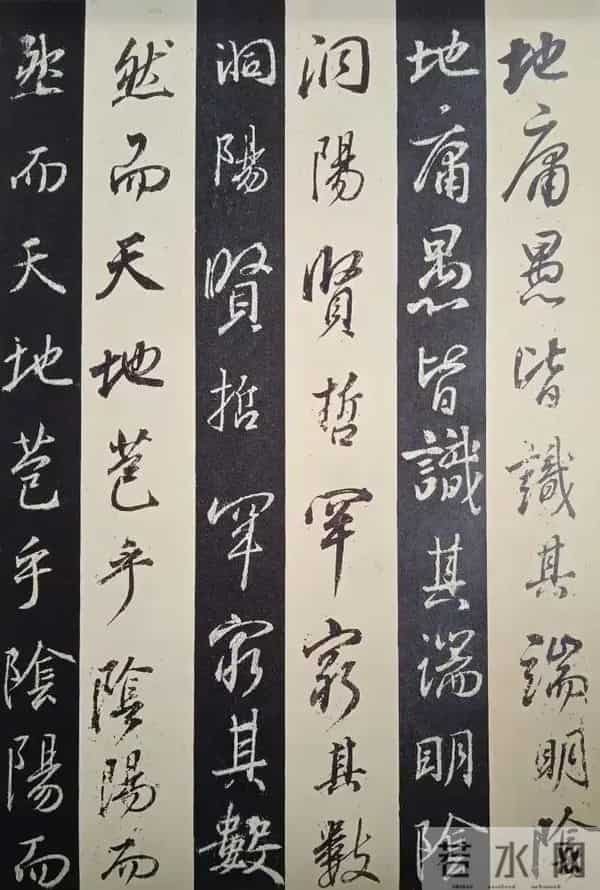 地庸愚皆識其端明陰
地庸愚皆識其端明陰
洞陽賢哲罕窮其數
洞陽賢哲罕窮其數
然而天地苞乎陰陽而
然而天地苞乎陰陽而
水网